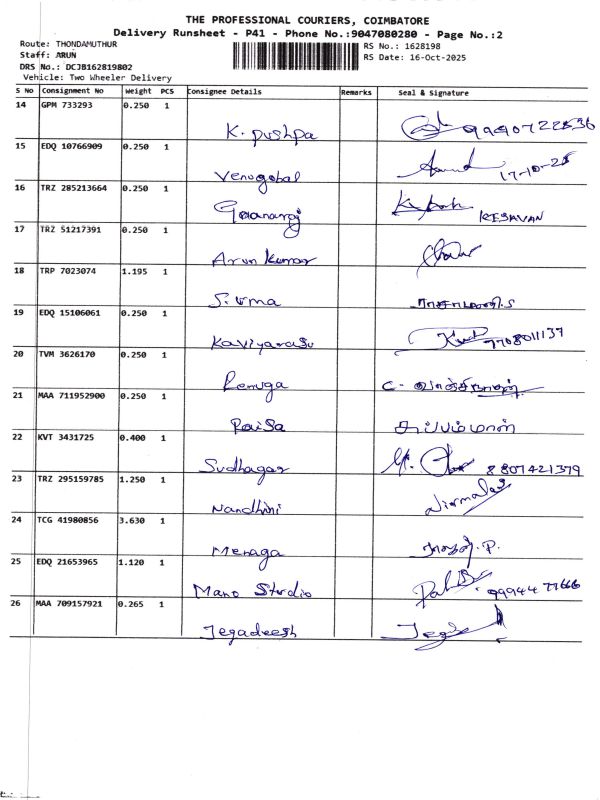 THE PROFESSIONAL COURIERS, COIMBATORE
Delivery Runsheet - P41 - Phone No.:9047080280 - Page No.:2
Route: THONDAMUTHUR
RS No.: 1628198
Staff: ARUN
RS Date: 16-Oct-2025
DRS No.: DCJB162819802
Vehicle: Two Wheeler Delivery
S No Consignment No Weight PCS Consignee Details Remarks Seal & Signature
14 GPM 733293 0.250 1
K. pushpa 9940722536
15 EDQ 10766909 0.250 1
Venugobal 17-10-25
16 TRZ 285213664 0.250 1
KESAVAN
17 TRZ 51217391 0.250 1
Arun kumar
18 TRP 7023074 1.195 1
S. uma
19 EDQ 15106061 0.250 1
Kaviyarasu 9708011137
20 TVM 3626170 0.250 1
Renuga
21 MAA 711952900 0.250 1
Raisa
22 KVT 3431725 0.400 1
Sudhagar 8807421379
23 TRZ 295159785 1.250 1
Nandhini
24 TCG 41980856 3.630 1
Menaga
25 EDQ 21653965 1.120 1
Mano Studio 9994477666
26 MAA 709157921 0.265 1
Jegadeesh